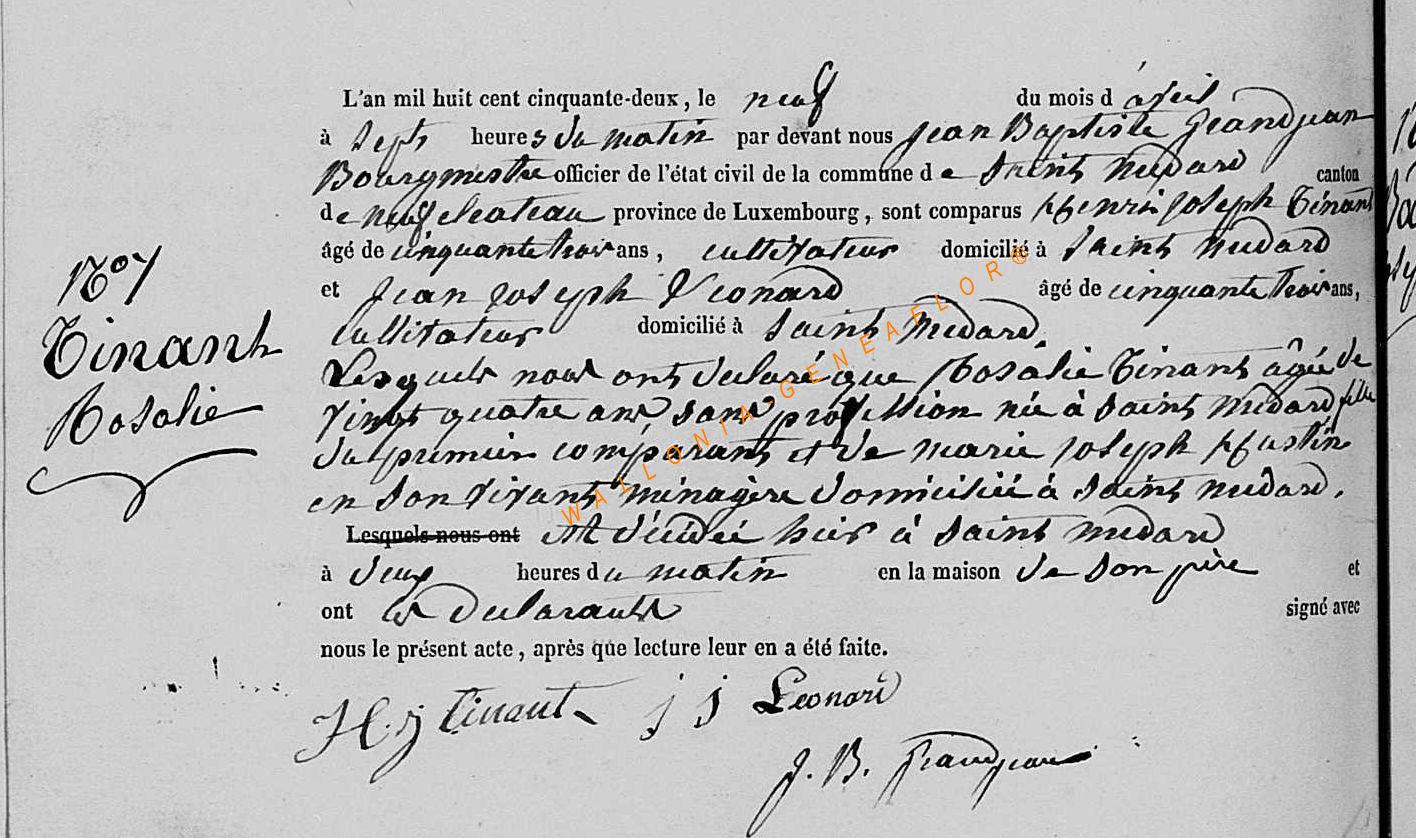 N° 7
Tinant
Rosalie
L'an mil huit cent cinquante-deux, le neuf du mois d'avril
à Sept heures du matin par devant nous Jean Baptiste Grandjean
Bourgmestre officier de l'état civil de la commune de Saint médard canton
de neufchateau province de Luxembourg, sont comparus henri joseph Tinant
âgé de cinquante trois ans, cultivateur domicilié à Saint médard
et Jean Joseph Léonard âgé de cinquante trois ans,
cultivateur domicilié à Saint Médard.
Lesquels nous ont déclaré que Rosalie Tinant âgée de
vingt quatre ans, sans profession née à Saint médard fille
du premier comparant et de marie joseph
en son vivant ménagère domiciliée à Saint médard.
Lesquels nous ont est décédée hier à Saint médard
à deux heures du matin en la maison de son père et
ont les déclarants signé avec
nous le présent acte, après que lecture leur en a été faite.
H. j Tinant j j Leonard
J. B. Grandjean
WALLONIA-GENEAFLOR®